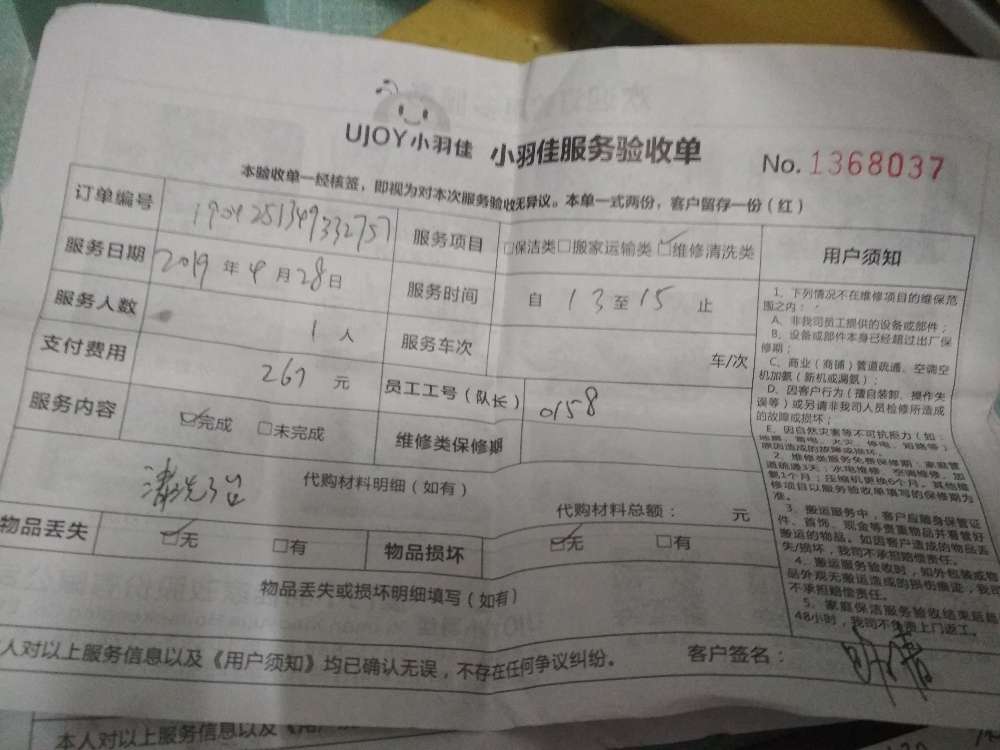 UJOY小羽佳 小羽佳服务验收单 No.1368037
本验收单一经核签，即视为对本次服务验收无异议。本单一式两份，客户留存一份（红）
订单编号 服务项目 □保洁类□搬家运输类☑维修清洗类
服务日期 2019年4月28日 服务时间 自13至15止
服务人数 1人 服务车次 车/次
支付费用 267元 员工工号（队长） 0158
服务内容 ☑完成 □未完成 维修类保修期
代购材料明细（如有）
清洗
代购材料总额： 元
物品丢失 ☑无 □有 物品损坏 ☑无 □有
物品丢失或损坏明细填写（如有）
人对以上服务信息以及《用户须知》均已确认无误，不存在任何争议纠纷。 客户签名：
用户须知
1、下列情况不在维修项目的维保范
围之内：
A、非我司员工提供的设备或部件；
B、设备或部件本身已经超过出厂保
修期；
C、商业（商铺）管道疏通、空调空
机加氨（新机或漏氨）；
D、因客户行为（擅自装卸、操作失
误等）或另请非我司人员检修所造成
的故障或损坏；
E、因自然灾害等不可抗拒力（如：
地震、雷电、火灾、停电、短路等）
原因造成的故障或损坏。
2、维修类服务免费保修期：家庭管
道疏通3天；水电维修、空调维修、加
氨1个月；压缩机更换6个月，其他维
修项目以服务验收单填写的保修期为
准。
3、搬运服务中，客户应随身保管证
件、首饰、现金等贵重物品并看管好
搬运的物品。如因客户造成的物品丢
失/损坏，我司不承担赔偿责任。
4、搬运服务验收时，如外包装或物
品外观无搬运造成的损伤痕迹，我司
不承担赔偿责任。
5、家庭保洁服务验收结束后超
48小时，我司不负责上门返工。
本人对以上服务信息以及《用户